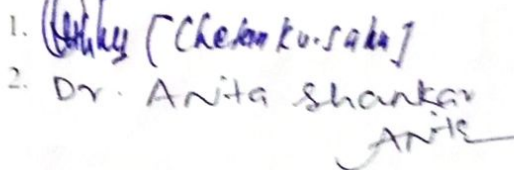 1. [Chetan Ku. Sahu]
2. Dr. Anita Shankar
Anita